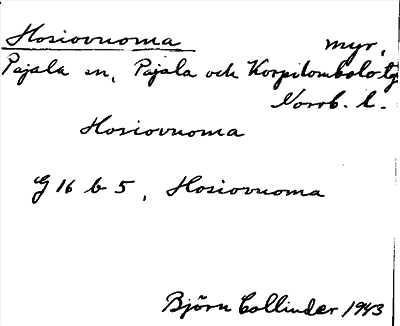 Hosiovuoma myr,
Pajala sn, Pajala och Korpilombolo tg
Norrb. l.
Hosiovuoma
G 16 b 5, Hosiovuoma
Björn Collinder 1943